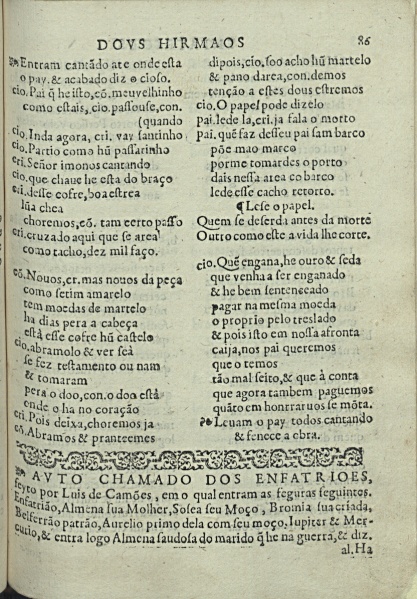 DOVS HIRMAOS
86
Entram cantãdo ate onde esta
o pay. & acabado diz o cioso.
cio. Pai q̃ he isto, cõ. meu velhinho
como estais, cio. passouse, con.
(quando
cio. Inda agora, cri. vay santinho
cio. Partio como hũ passarinho
cri. Señor imonos cantando
cio. que chaue he esta do braço
cri. desse cofre, boa estrea
hũa chea
choremos, cõ. tam certo passo
cri. cruzado aqui que se area
como tacho, dez mil faço.
cõ. Nouos, cr. mas nouos da peça
como setim amarelo
tem moedas de martelo
ha dias pera a cabeça
està esse cofre hũ castelo
cio. abramolo & ver seà
se fez testamento ou nam
& tomaram
pera o doo, con. o doo està
onde o ha no coração
cri. Pois deixa, choremos ja
cõ. Abramos & pranteemes
dipois, cio. soo acho hũ martelo
& pano darea, con. demos
tenção a estes dous estremos
cio. O papel pode dizelo
pai. lede la, cri. ja fala o morto
pai. quẽ faz desseu pai sam barco
põe mao marco
por me tomardes o porto
dais nessa area co barco
lede esse cacho retorto.
¶ Lese o papel.
Quem se deserda antes da morte
Outro como este a vida lhe corte.
cio. Quẽ engana, he ouro & seda
que venha a ser enganado
& he bem sentenceado
pagar na mesma moeda
o proprio pelo treslado
& pois isto em nossa afronta
caija, nos pai queremos
que o temos
tão mal feito, & que à conta
que agora tambem paguemos
quãto em honrraruos se mõta.
Leuam o pay todos cantando
& fenece a obra.
AVTO CHAMADO DOS ENFATRIOES,
feyto por Luis de Camões, em o qual entram as feguras seguintes.
Enfatrião, Almena sua Molher, Sosea seu Moço, Bromia sua criada,
Belferrão patrão, Aurelio primo dela com seu moço. Iupiter & Mer-
curio, & entra logo Almena saudosa do marido q̃ he na guerra, & diz.
al. Ha